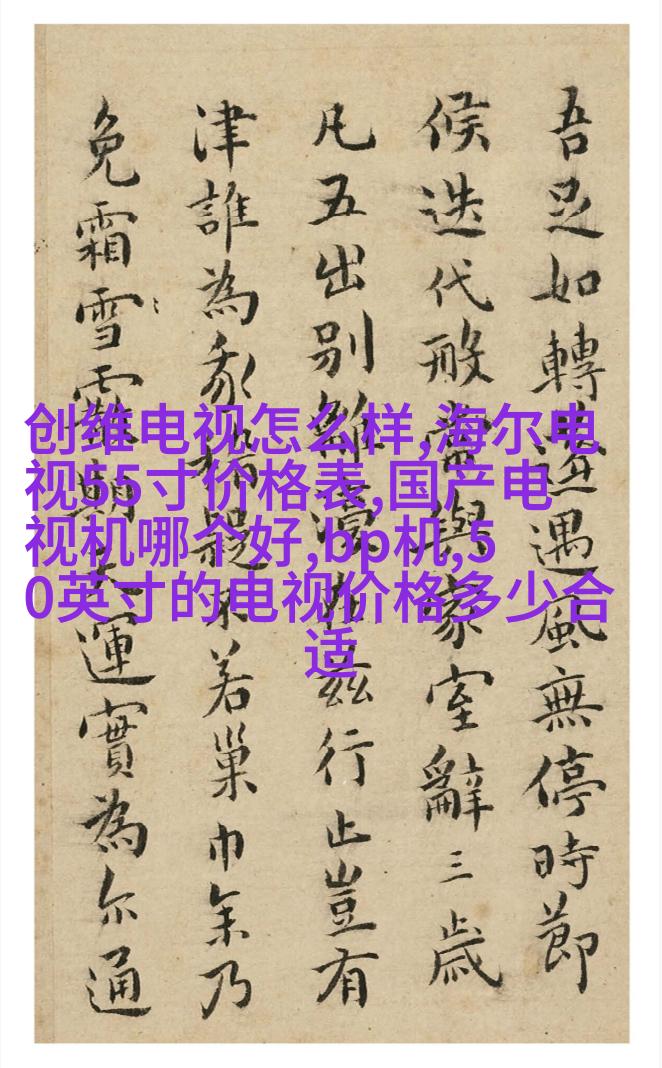 创维电视怎么样,海尔电
视55寸价格表,国产电
视机哪个好,bp机,5
0英寸的电视价格多少合
适
吾足如轉遇風無停時節
候迭代當與家室辭三歲
凡五出別離茲行止豈有
津誰為不若巢巾乃
免霜雪運實為尔通